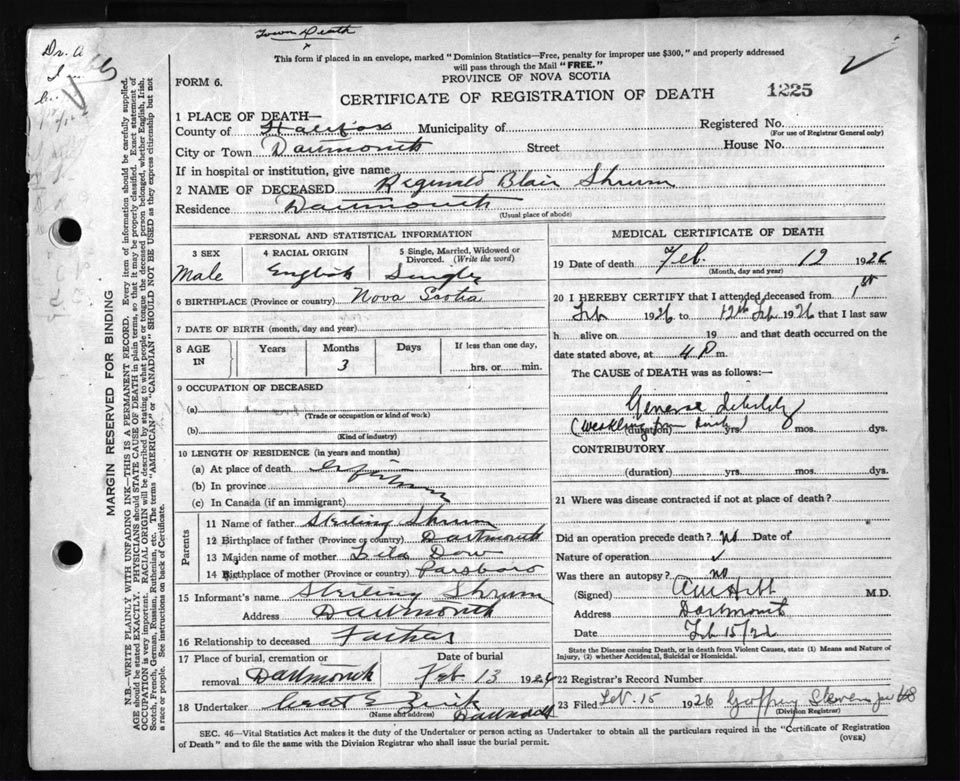 Town Death
This form if placed in an envelope, marked "Dominion Statistics—Free, penalty for improper use $300," and properly addressed
will pass through the Mail "FREE."
FORM 6.
PROVINCE OF NOVA SCOTIA
CERTIFICATE OF REGISTRATION OF DEATH 1225
1 PLACE OF DEATH—
County of Halifax Municipality of Registered No.
(For use of Registrar General only)
City or Town Dartmouth Street House No.
If in hospital or institution, give name
2 NAME OF DECEASED Reginald Blair Shrum
Residence Dartmouth
(Usual place of abode)
PERSONAL AND STATISTICAL INFORMATION
3 SEX
Male
4 RACIAL ORIGIN
English
5 Single, Married, Widowed or
Divorced. (Write the word)
Single
6 BIRTHPLACE (Province or country) Nova Scotia
7 DATE OF BIRTH (month, day and year)
8 AGE
IN
Years
Months
3
Days
If less than one day,
hrs. or min.
9 OCCUPATION OF DECEASED
(a)
(Trade or occupation or kind of work)
(b)
(Kind of industry)
10 LENGTH OF RESIDENCE (in years and months)
(a) At place of death
(b) In province
(c) In Canada (if an immigrant)
Parents
11 Name of father Sterling Shrum
12 Birthplace of father (Province or country) Dartmouth
13 Maiden name of mother Dow
14 Birthplace of mother (Province or country) Parsboro
15 Informant's name Sterling Shrum
Address Dartmouth
16 Relationship to deceased Father
17 Place of burial, cremation or
removal Dartmouth
Date of burial
Feb 13 192
18 Undertaker
(Name and address)
MEDICAL CERTIFICATE OF DEATH
19 Date of death Feb. 12 1926
(Month, day and year)
20 I HEREBY CERTIFY that I attended deceased from 1st
Feb 1926 to 12th Feb 1926 that I last saw
h alive on 19 and that death occurred on
date stated above, at 4 P m.
The CAUSE of DEATH was as follows:—
General Debility
(Weakling from birth)
(duration) yrs. mos. dys.
CONTRIBUTORY
(duration) yrs. mos. dys.
21 Where was disease contracted if not at place of death?
Did an operation precede death? No Date of
Nature of operation
Was there an autopsy? no
(Signed) M.D.
Address Dartmouth
Date Feb 15/26
State the Disease causing Death, or in death from Violent Causes, state (1) Means and Nature of
Injury, (2) whether Accidental, Suicidal or Homicidal.
22 Registrar's Record Number
23 Filed Feb. 15 1926 Geoffrey Stevens
(Division Registrar)
SEC. 46—Vital Statistics Act makes it the duty of the Undertaker or person acting as Undertaker to obtain all the particulars required in the "Certificate of Registration
of Death" and to file the same with the Division Registrar who shall issue the burial permit.
(OVER)
MARGIN RESERVED FOR BINDING
N.B.—WRITE PLAINLY WITH UNFADING INK—THIS IS A PERMANENT RECORD. Every item of information should be carefully supplied.
AGE should be stated EXACTLY. PHYSICIANS should STATE CAUSE OF DEATH in plain terms, so that it may be properly classified. Exact statement of
OCCUPATION is very important. RACIAL ORIGIN will be described by stating to what people or tongue the deceased person belonged, whether English, Irish,
Scotch, French, German, Russian, Ruthenian, etc. The terms "AMERICAN" or "CANADIAN" SHOULD NOT BE USED as they express citizenship but not
a race or people. See instructions on back of Certificate.